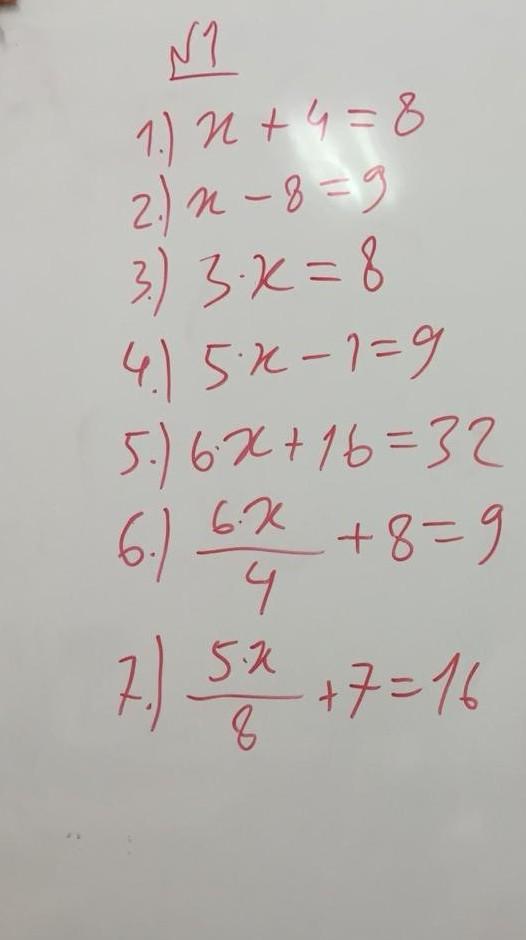 №1
1.) x + 4 = 8
2.) x - 8 = 9
3.) 3·x = 8
4.) 5·x - 1 = 9
5.) 6·x + 16 = 32
6.) 6·x/4 + 8 = 9
7.) 5·x/8 + 7 = 16